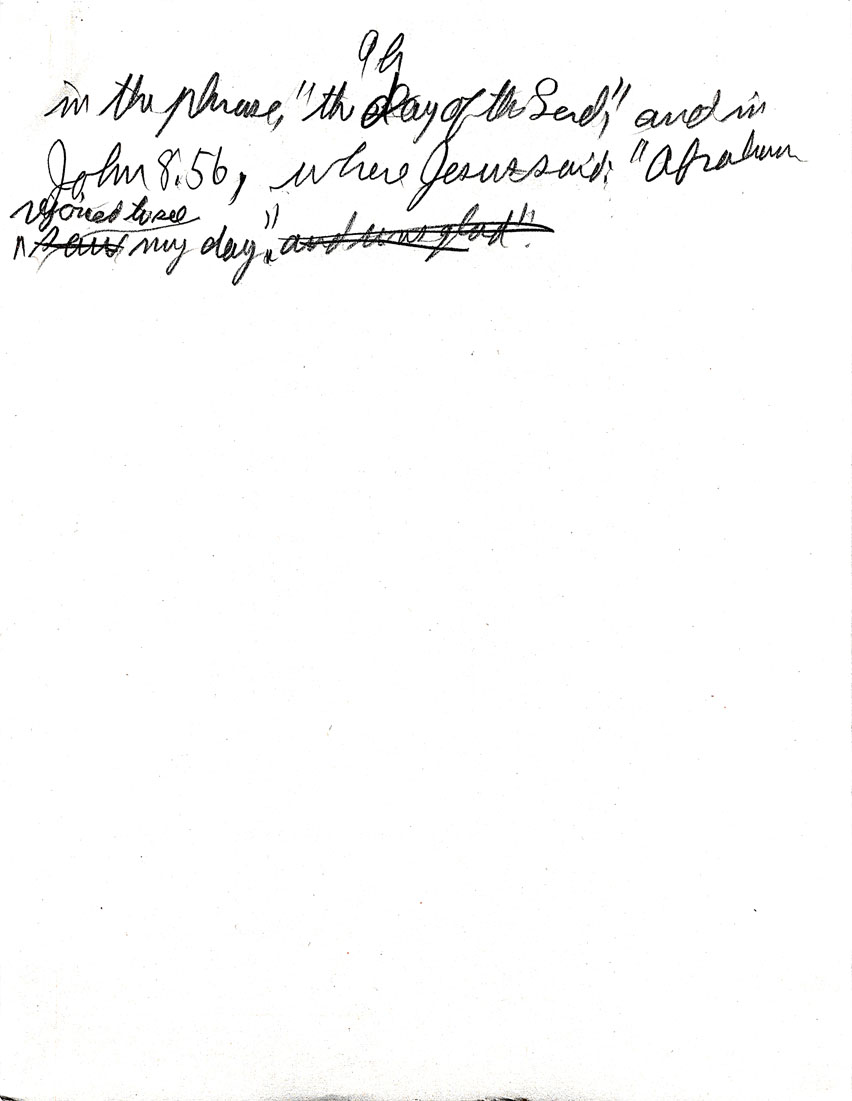 9b
in the phrase, "the day of the Lord," and in
John 8:56, where Jesus said: "Abraham
rejoiced to see
saw my day," and was glad".